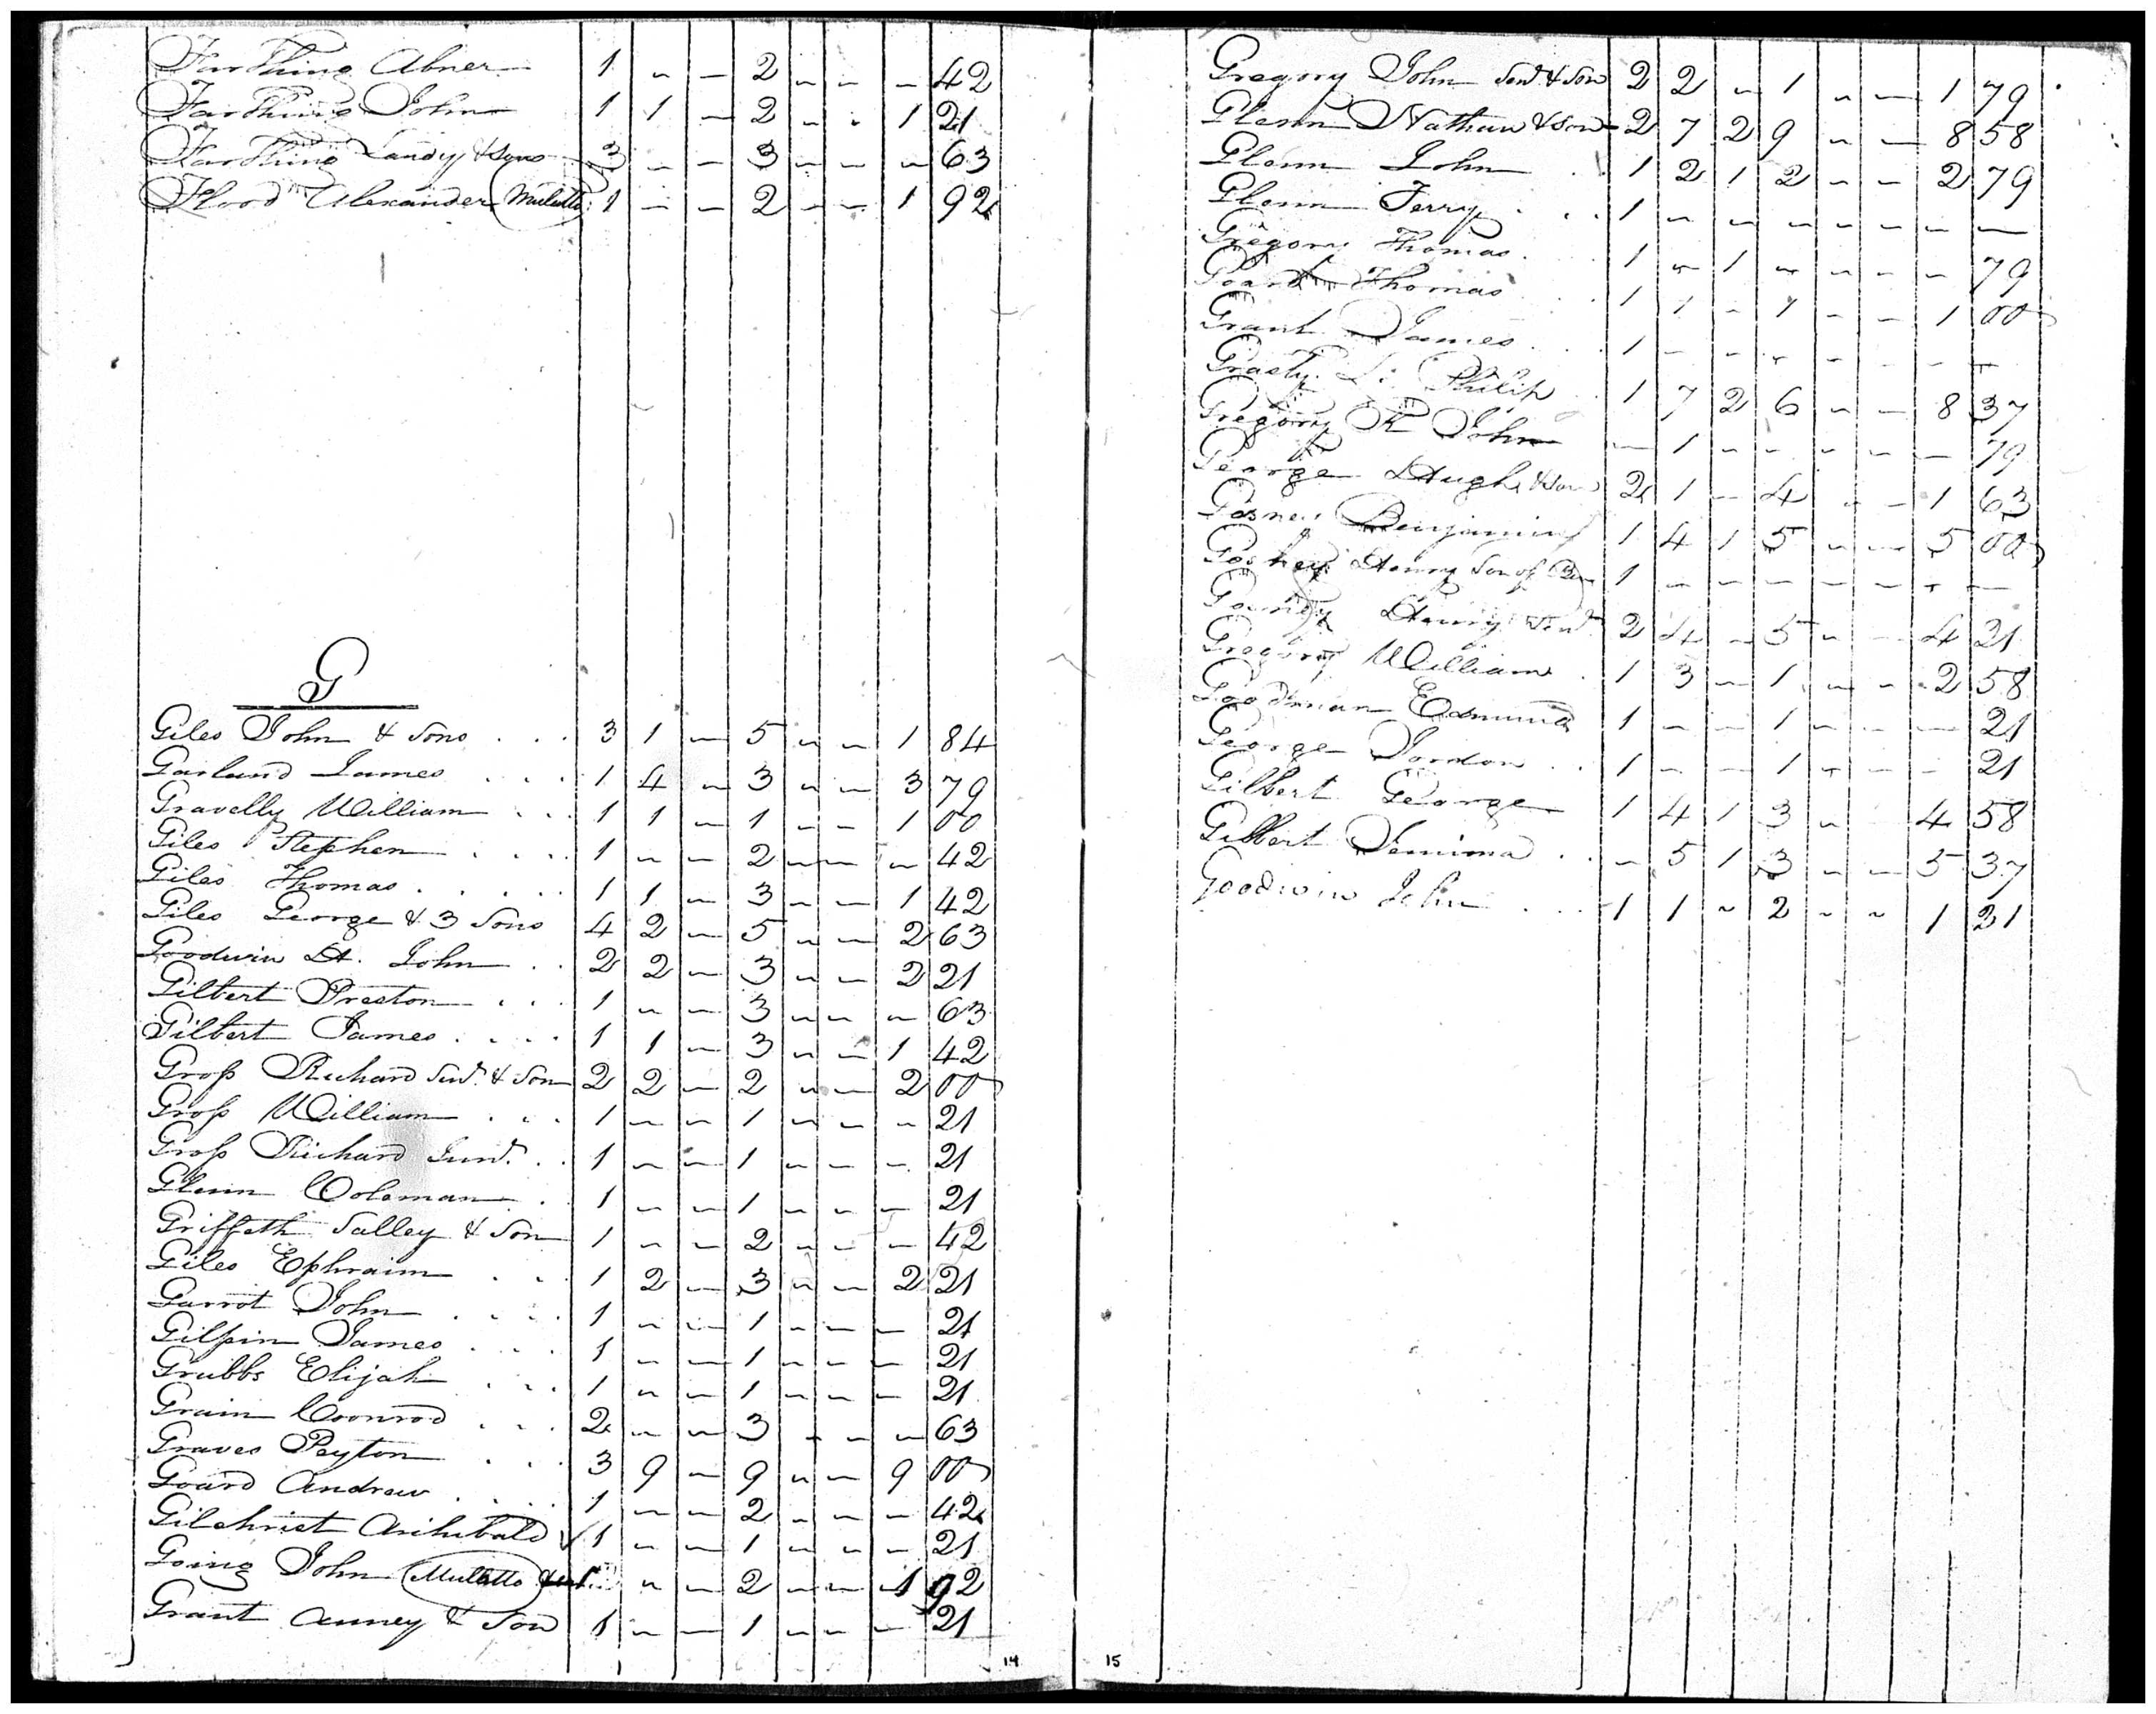 Farthing Abner 1 ~ — 2 ~ — — 42
Farthing John 1 1 — 2 ~ - 1 21
Farthing Landy & Sons 3 ~ — 3 ~ — ~ 63
Flood Alexander (Mulatto) 1 — — 2 — — 1 92
G
Giles John & Sons . . . 3 1 — 5 ~ ~ 1 84
Garland James . . . . 1 4 ~ 3 ~ — 3 79
Gravelly William . . . 1 1 — 1 ~ — 1 00
Giles Stephen . . . . 1 ~ — 2 — — ~ 42
Giles Thomas . . . . . 1 1 — 3 ~ — 1 42
Giles George & 3 Sons 4 2 — 5 ~ — 2 63
Goodwin Lt. John . . 2 2 — 3 ~ — 2 21
Gilbert Preston . . . 1 ~ — 3 ~ ~ ~ 63
Gilbert James . . . . 1 1 — 3 ~ — 1 42
Groſs Richard Senr. & Son 2 2 — 2 ~ — 2 00
Groſs William . . . 1 — — 1 ~ ~ ~ 21
Groſs Richard Junr. . . 1 ~ — 1 ~ — — 21
Glenn Coleman . 1 ~ — 1 ~ ~ — 21
Griffeth Salley & Son 1 ~ — 2 ~ ~ — 42
Giles Ephraim . . 1 2 — 3 ~ — 2 21
Garrot John . . . . 1 ~ — 1 ~ — — 21
Gilpin James . . . 1 ~ — 1 ~ ~ — 21
Grubbs Elijah . . . 1 ~ ~ 1 ~ ~ — 21
Grain Coonrod . . . 2 ~ ~ 3 ~ ~ — 63
Graves Peyton . . . 3 9 — 9 ~ — 9 00
Goard Andrew . . . . 1 — — 2 ~ ~ — 42
Gilchrist Archibald √ 1 ~ — 1 ~ ~ — 21
Going John (Mulatto) ~ — 2 ~ — 1 92
Grant Anney & Son 1 ~ — 1 ~ ~ — 21
14
Gregory John Senr & Son 2 2 ~ 1 ~ — 1 79
Glenn Nathan & Son 2 7 2 9 ~ — 8 58
Glenn John . 1 2 1 2 ~ ~ 2 79
Glenn Terry . . . 1 ~ ~ ~ ~ ~ ~ —
Gregory Thomas . 1 ~ 1 ~ ~ ~ ~ 79
Goard Thomas . . 1 1 - 1 ~ - 1 00
Grant James . . . 1 — - ~ ~ - - ~
Grasty Philip . 1 7 2 6 ~ — 8 37
Gregory R John — 1 ~ ~ ~ ~ — 79
George Hugh & Son 2 1 — 4 ~ — 1 63
Benjamin 1 4 1 5 ~ — 5 00
Henry Son of Ben 1 ~ — — — ~ ~ —
Henry Senr. 2 4 — 5 ~ — 4 21
Gregory William . 1 3 — 1 ~ ~ 2 58
Goodman Edmund 1 — — 1 ~ — — 21
George Jordon . . 1 — — 1 ~ - - 21
Gilbert George 1 4 1 3 ~ 4 58
Gilbert Jemima . . ~ 5 1 3 ~ — 5 37
Goodwin John . . . 1 1 ~ 2 ~ ~ 1 21
15